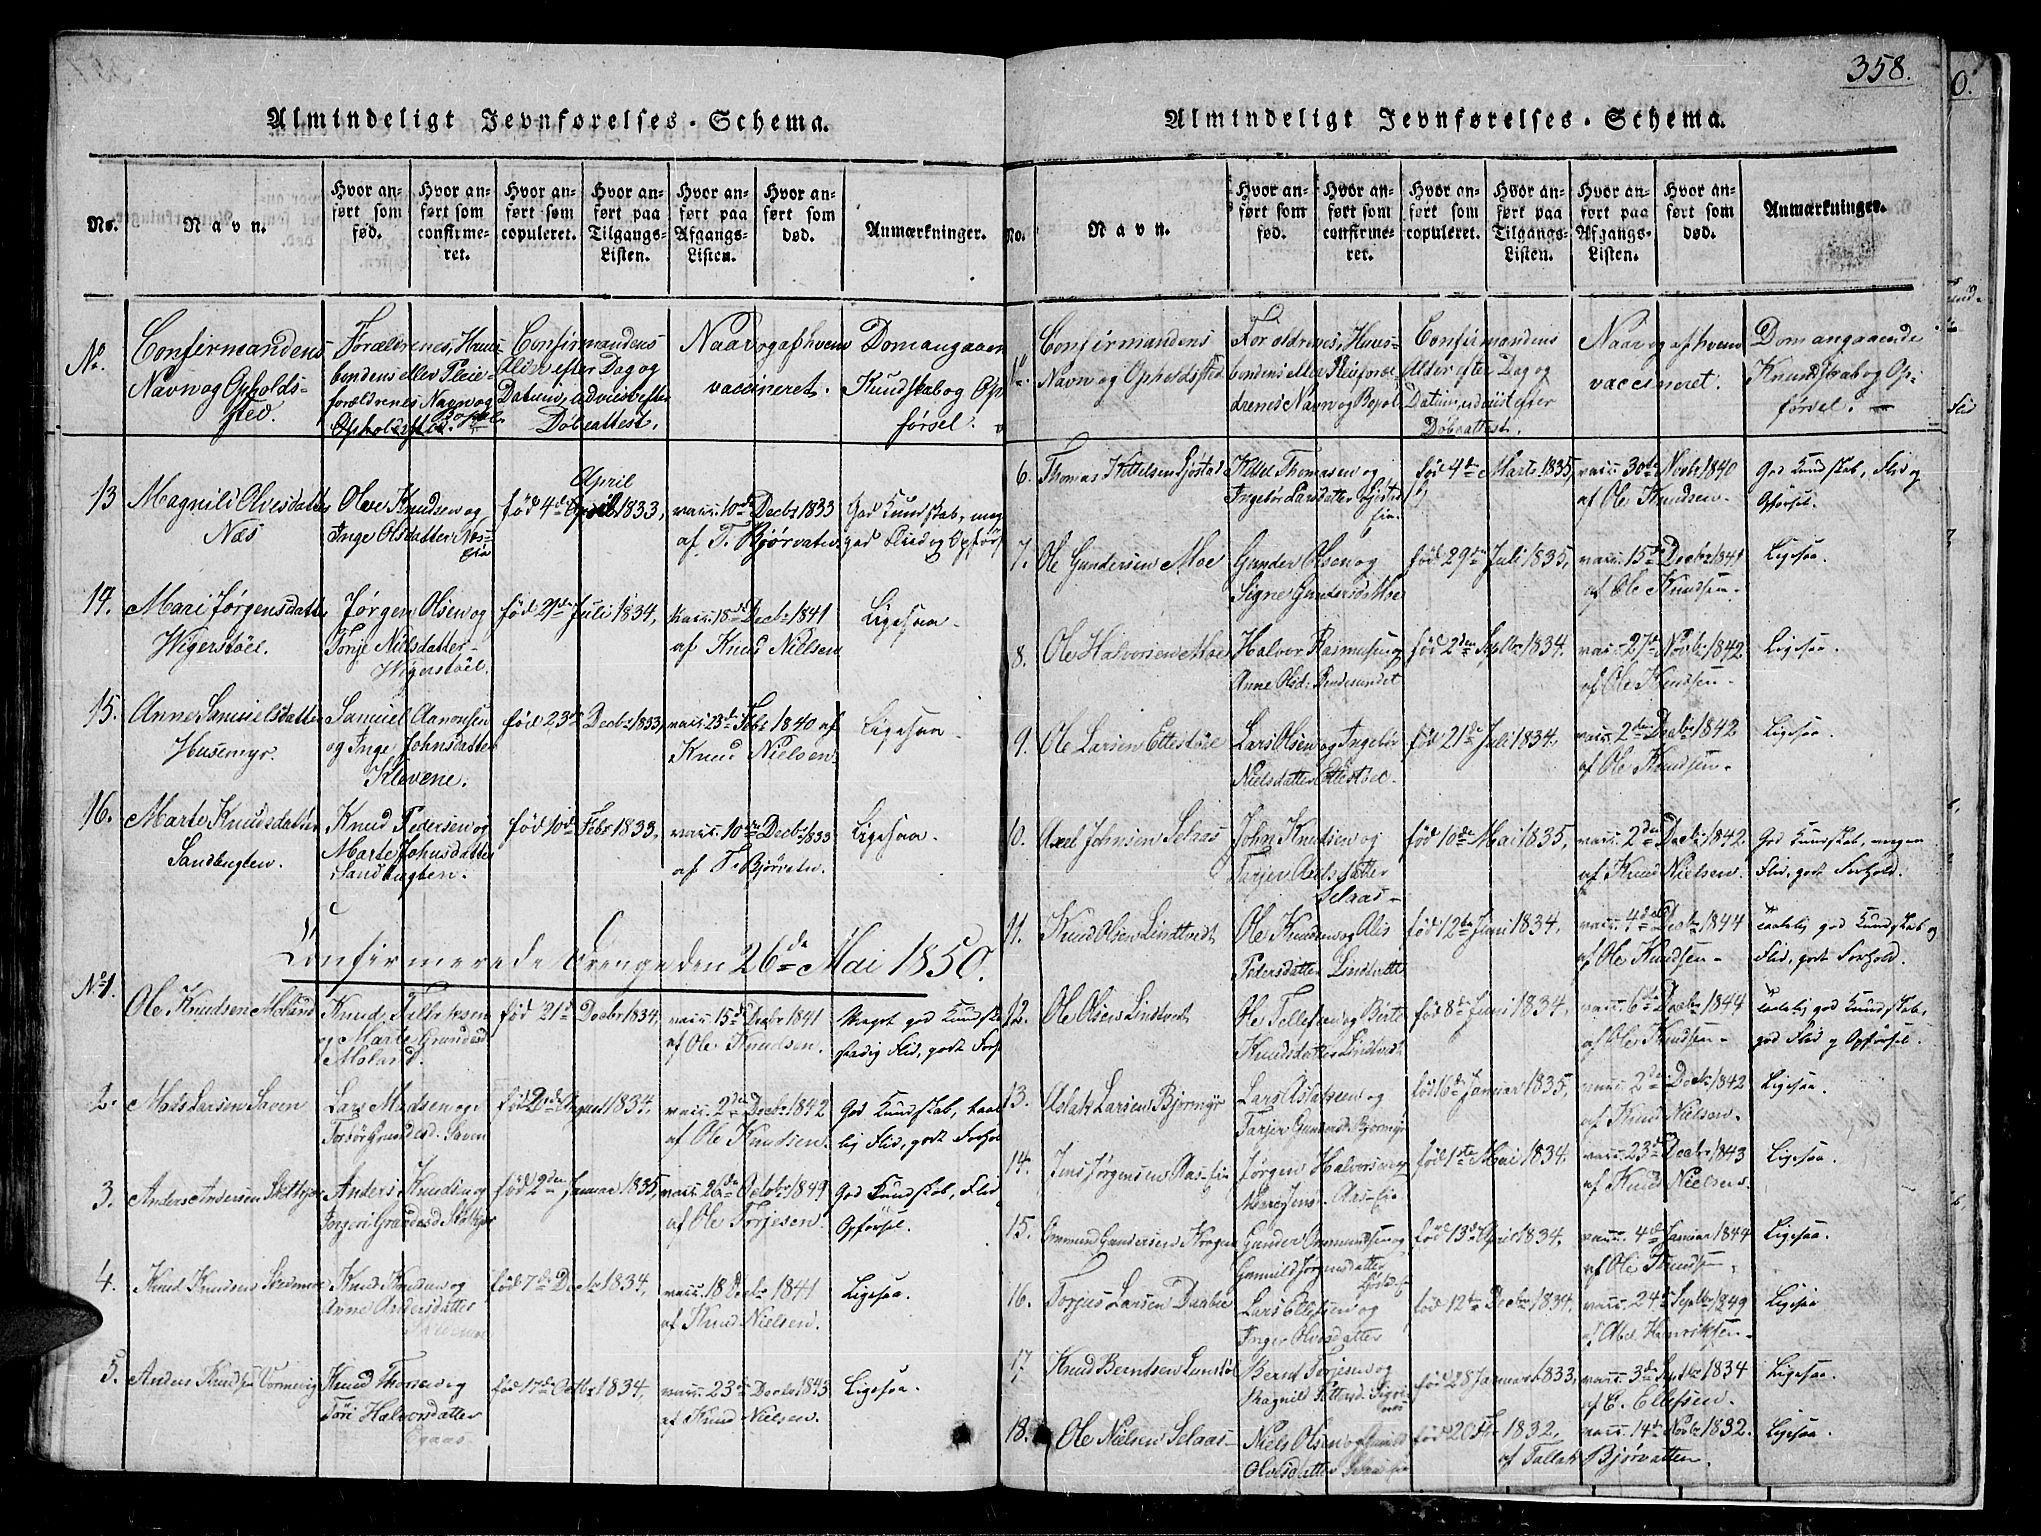 358.
Almindeligt Jevnførelses-Schema.
No.
Navn.
Hvor anført som fød.
Hvor anført som confirmeret.
Hvor anført som copuleret.
Hvor anført paa Tilgangs-Listen.
Hvor anført paa Afgangs-Listen.
Hvor anført som død.
Anmærkninger.
No.
Confirmandens
Navn og Opholds-
sted.
Forældrenes, Huus-
bondens eller Pleie-
forældrenes Navn og
Bopæl.
Confirmandens
Alder efter Dag og
Datum, udviist efter
Døbeattest.
Naar og af hvem
vaccineret.
Dom angaaen
Kundskab og Op
førsel.
13 Magnild Olvesdatter
Næs
Olve Knudsen og
Inge Olsdatter Næs-
Eie
April
født 4de April 1833,
vacc. 10de Decbr 1833
af T. Bjørvatn.
God Kundskab, meg
god Fliid og Opførs
14. Mari Jørgensdatter
Wigerstöel.
Jørgen Olsen og
Tonje Nielsdatter
Wigerstöel.
fød 21de Juli 1834,
vacc. 18de Decbr 1841
af Knud Nielsen
Ligesaa.
15. Anne Samuelsdatter
Husemyr.
Samuel Aanonsen
og Inge Johnsdatter
Klevene.
fød 23de Decbr 1833,
vacc. 23de Febr 1840 af
Knud Nielsen.
Ligesaa.
16. Marte Knudsdatter
Sandbugten.
Knud Pedersen og
Marte Johnsdatter
Sandbugten.
fød 10de Febr 1833,
vacc. 10de Decbr 1833
af T. Bjørvatn.
Ligesaa.
Confirmerede Drenge den 26de Mai 1850.
No 1.
Ole Knudsen Moland
Knud Fabriksen
og Marte Grundesd
Moland.
fød 21de Decbr 1834,
vacc. 15de Decbr 1841
af Ole Knudsen.
Meget god Kundska
stadig Flid, godt Forh
2. Mads Larsen Saven
Lars Madsen og
Torbør Gundersd. Saven
fød 2de August 1834,
vacc. 2den Decbr 1842
af Ole Knudsen.
God Kundskab, taal
lig Flid, godt Forhol
3. Anders Andersen
Anders Knudsen og
fød 2den Januar 1835,
vacc. 26de Octobr 1849
af Ole Torjesen.
God Kundskab, Flid
Opførsel.
4. Knud Knudsen
Knud Knudsen og
Anne Andersdatter
fød 7de Decbr 1834,
vacc. 18 Decbr 1841
af Knud Nielsen.
Ligesaa.
5. Anders Knudsen Vormevig
Knud Thorsen og
Töri Halvorsdatter
Egaas
fød 17de Octbr 1834,
vacc. 23de Decbr 1843
af Knud Nielsen.
Ligesaa.
Almindeligt Jevnførelses-Schema.
No.
Navn.
Hvor anført som fød.
Hvor anført som confirmeret.
Hvor anført som copuleret.
Hvor anført paa Tilgangs-Listen.
Hvor anført paa Afgangs-Listen.
Hvor anført som død.
Anmærkninger.
Confirmandens
Navn og Opholdsted.
Forældrenes, Huus-
bondens eller Pleieforæl-
drenes Navn og Bopæl
Confirmandens
Alder efter Dag og
Datum, udviist efter
Døbeattest.
Naar og af hvem
vaccineret.
Dom angaaende
Kundskab og Op-
førsel.
6. Thomas Kittelsen Gjestad
Kittel Thomasen og
Ingebør Larsdatter Gjestad
Eie.
fød 4de Marts 1835,
vacc. 30te Novbr 1840
af Ole Knudsen.
God Kundskab, Flid og
Opførsel.
7. Ole Gundersen Moe
Gunder Olsen og
Signe Gundersd Moe
fød 29de Juli 1835,
vacc. 15de Decbr 1841
af Ole Knudsen.
Ligesaa.
8. Ole Halvorsen Moe
Halvor Rasmusen og
Anne Olsd.
fød 2den Septbr 1834.
vacc. 27de Novbr 1842
af Ole Knudsen
Ligesaa.
9. Ole Larsen Ettestöl
Lars Olsen og Ingebør
Nielsdatter Ettestöel.
fød 21de Juli 1834,
vacc. 2den Decbr 1842
af Ole Knudsen.
Ligesaa.
10. Axel Johnsen Selaas
John Knudsen og
Tarjer Axelsdatter
Selaas
fød 10de Mai 1835,
vacc. 2den Decbr 1842
af Knud Nielsen.
God Kundskab, megen
Flid, godt Forhold.
11. Knud Olsen Lindtvedt
Ole Knudsen og Alis
Pedersdatter Lindtvedt
fød 12te Juni 1834,
vacc. 4de Decbr 1844
af Ole Knudsen
Taalelig god Kundskab og
Flid, godt Forhold.
12. Ole Olsen Lindtvedt
Ole Tellefsen og Berte
Knudsdatter Lindtvedt
fød 8de Juni 1834,
vacc. 6te Decbr 1844
af Ole Knudsen
Taalelig god Kundskab,
god Flid og Opførsel.
13. Aslak Larsen Bjormyr
Lars Aslaksen og
Tarjer Gundersd. Bjormyr
fød 16de Januar 1835,
vacc. 2den Decbr 1842
af Knud Nielsen.
Ligesaa.
14. Jens Jørgensen Aas-Eie
Jørgen Halvorsen og
Aas-Eie
fød 1ste Mai 1834.
vacc. 23de Decbr 1843
af Knud Nielsen.
Ligesaa.
15. Ommund Gundersen
Gunder Ommundsen og
Gunnild Jørgensdatter
fød 13de April 1834.
vacc. 4de Januar 1844
af Ole Knudsen.
Ligesaa.
16. Torjus Larsen Daabu
Lars Ellefsen og
Inger Olvesdatter
fød 12te Decbr 1834,
vacc. 24de Septbr 1849
af Abel Henriksen.
Ligesaa.
17 Knud Berntsen Lunstöl
Bernt Torjusen og
fød 28 Januar 1833,
vacc. 3de Septbr 1834
af E. Ellefsen.
Ligesaa.
18. Ole Nielsen Selaas
Niels Olsen og Gunild
Olvesdatter
fød 20 1832,
vacc. 14de Novbr 1832.
af Tallak Bjørvatten.
Ligesaa.